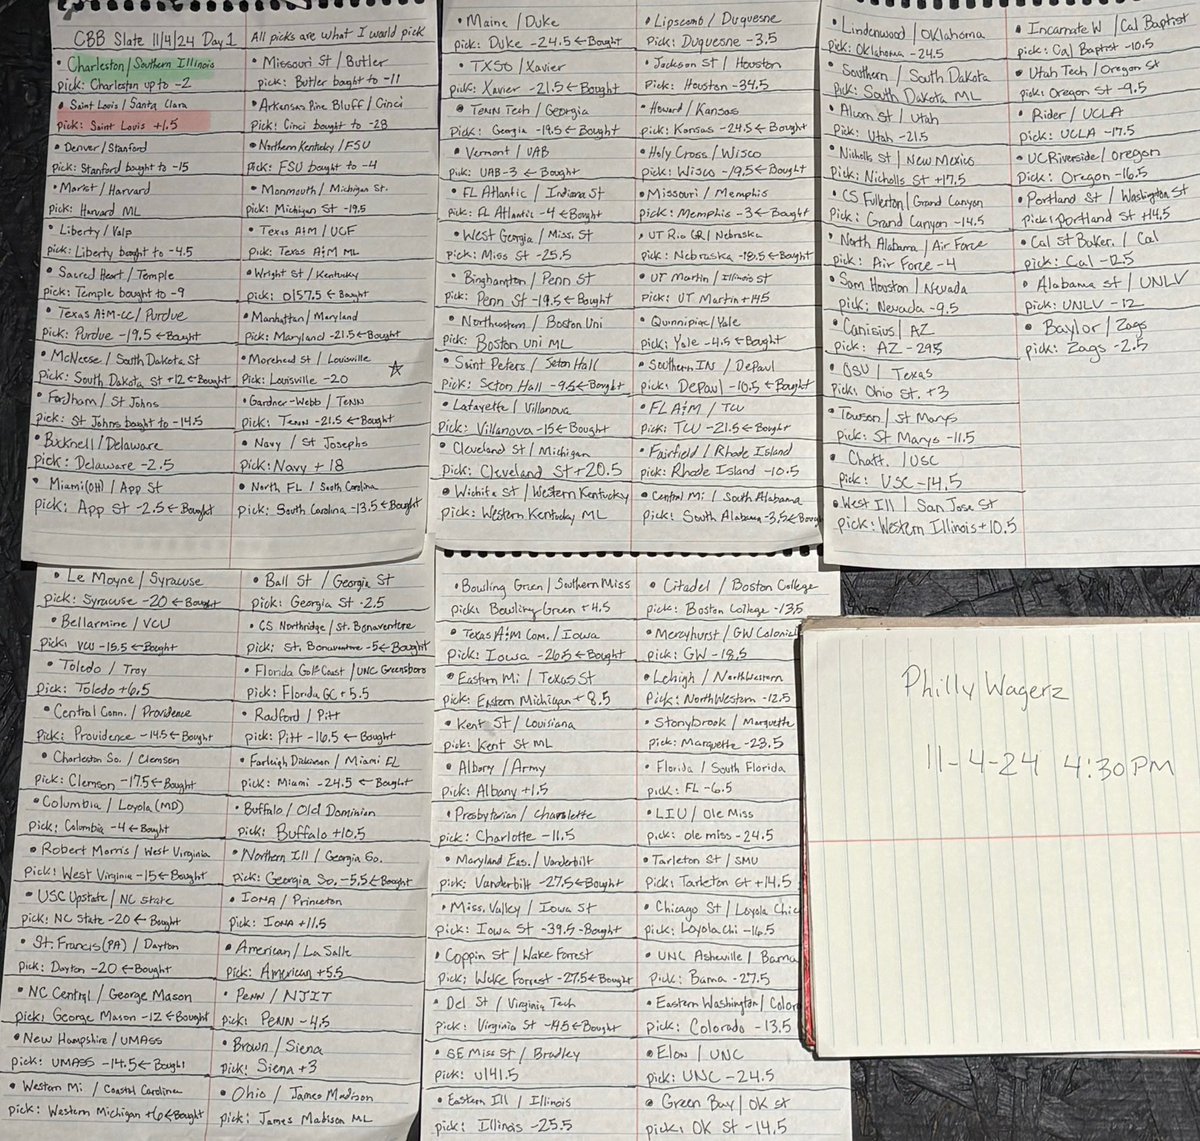 CBB Slate 11/4/24 Day 1
All picks are what I would pick
• Charleston/Southern Illinois
pick: Charleston up to -2
• Saint Louis/Santa Clara
pick: Saint Louis +1.5
• Denver/Stanford
pick: Stanford bought to -15
• Marist/Harvard
pick: Harvard ML
• Liberty/Valp
pick: Liberty bought to -4.5
• Sacred Heart/Temple
pick: Temple bought to -9
• Texas A&M-CC/Purdue
pick: Purdue -19.5 ← Bought
• McNeese/South Dakota St
pick: South Dakota St +12 ← Bought
• Fordham/St Johns
pick: St Johns bought to -14.5
• Bucknell/Delaware
pick: Delaware -2.5
• Miami(OH)/App St
pick: App St -2.5 ← Bought
• Missouri St/Butler
pick: Butler bought to -11
• Arkansas Pine Bluff/Cinci
pick: Cinci bought to -28
• Northern Kentucky/FSU
pick: FSU bought to -4
• Monmouth/Michigan St.
pick: Michigan St -19.5
• Texas A&M/UCF
pick: Texas A&M ML
• Wright St/Kentucky
pick: O157.5 ← Bought
• Manhattan/Maryland
pick: Maryland -21.5 ← Bought
• Morehead St/Louisville
pick: Louisville -20
• Gardner-Webb/TENN
pick: TENN -21.5 ← Bought
• Navy/St Josephs
pick: Navy +18
• North FL/South Carolina
pick: South Carolina -13.5 ← Bought
• Maine/Duke
pick: Duke -24.5 ← Bought
• TXSO/Xavier
pick: Xavier -21.5 ← Bought
• TENN Tech/Georgia
pick: Georgia -19.5 ← Bought
• Vermont/UAB
pick: UAB -3 ← Bought
• FL Atlantic/Indiana St
pick: FL Atlantic -4 ← Bought
• West Georgia/Miss. St
pick: Miss St -25.5
• Binghampton/Penn St
pick: Penn St -19.5 ← Bought
• Northeastern/Boston Uni
pick: Boston Uni ML
• Saint Peters/Seton Hall
pick: Seton Hall -9.5 ← Bought
• Lafayette/Villanova
pick: Villanova -15 ← Bought
• Cleveland St/Michigan
pick: Cleveland St +20.5
• Wichita St/Western Kentucky
pick: Western Kentucky ML
• Lipscomb/Duquesne
pick: Duquesne -3.5
• Jackson St/Houston
pick: Houston -34.5
• Howard/Kansas
pick: Kansas -24.5 ← Bought
• Holy Cross/Wisco
pick: Wisco -19.5 ← Bought
• Missouri/Memphis
pick: Memphis -3 ← Bought
• UT Rio GR/Nebraska
pick: Nebraska -18.5 ← Bought
• UT Martin/Illinois St
pick: UT Martin +14.5
• Quinnipiac/Yale
pick: Yale -4.5 ← Bought
• Southern IN/DePaul
pick: DePaul -10.5 ← Bought
• FL A&M/TCU
pick: TCU -21.5 ← Bought
• Fairfield/Rhode Island
pick: Rhode Island -10.5
• Central Mi/South Alabama
pick: South Alabama -3.5 ← Bou
• Lindenwood/Oklahoma
pick: Oklahoma -24.5
• Southern/South Dakota
pick: South Dakota ML
• Alcorn St/Utah
pick: Utah -21.5
• Nicholls St/New Mexico
pick: Nicholls St +17.5
• CS Fullerton/Grand Canyon
pick: Grand Canyon -14.5
• North Alabama/Air Force
pick: Air Force -4
• Sam Houston/Nevada
pick: Nevada -9.5
• Canisius/AZ
pick: AZ -29.5
• OSU/Texas
pick: Ohio St. +3
• Towson/St Marys
pick: St Marys -11.5
• Chatt./USC
pick: USC -14.5
• West Ill/San Jose St
pick: Western Illinois +10.5
• Incarnate W/Cal Baptist
pick: Cal Baptist -10.5
• Utah Tech/Oregon St
pick: Oregon St -9.5
• Rider/UCLA
pick: UCLA -17.5
• UC Riverside/Oregon
pick: Oregon -16.5
• Portland St/Washington St
pick: Portland St +14.5
• Cal St Baker./Cal
pick: Cal -12.5
• Alabama St/UNLV
pick: UNLV -12
• Baylor/Zags
pick: Zags -2.5
• Le Moyne/Syracuse
pick: Syracuse -20 ← Bought
• Bellarmine/VCU
pick: VCU -15.5 ← Bought
• Toledo/Troy
pick: Toledo +6.5
• Central Conn./Providence
pick: Providence -14.5 ← Bought
• Charleston So./Clemson
pick: Clemson -17.5 ← Bought
• Columbia/Loyola(MD)
pick: Columbia -4 ← Bought
• Robert Morris/West Virginia
pick: West Virginia -15 ← Bought
• USC Upstate/NC State
pick: NC State -20 ← Bought
• St. Francis(PA)/Dayton
pick: Dayton -20 ← Bought
• NC Central/George Mason
pick: George Mason -12 ← Bought
• New Hampshire/UMASS
pick: UMASS -14.5 ← Bought
• Western Mi/Coastal Carolina
pick: Western Michigan +6 ← Bought
• Ball St/Georgia St
pick: Georgia St -2.5
• CS Northridge/St. Bonaventure
pick: St. Bonaventure -5 ← Bought
• Florida Golf Coast/UNC Greensboro
pick: Florida GC +5.5
• Radford/Pitt
pick: Pitt -16.5 ← Bought
• Farleigh Dickinson/Miami FL
pick: Miami -24.5 ← Bought
• Buffalo/Old Dominion
pick: Buffalo +10.5
• Northern Ill/Georgia So.
pick: Georgia So. -5.5 ← Bought
• IONA/Princeton
pick: IONA +11.5
• American/La Salle
pick: American +5.5
• PENN/NJIT
pick: PENN -4.5
• Brown/Siena
pick: Siena +3
• Ohio/James Madison
pick: James Madison ML
• Bowling Green/Southern Miss
pick: Bowling Green +4.5
• Texas A&M Com./Iowa
pick: Iowa -26.5 ← Bought
• Eastern Mi/Texas St
pick: Eastern Michigan +8.5
• Kent St/Louisiana
pick: Kent St ML
• Albany/Army
pick: Albany +1.5
• Presbyterian/Charolette
pick: Charlotte -11.5
• Maryland Eas./Vanderbilt
pick: Vanderbilt -27.5 ← Bought
• Miss. Valley/Iowa St
pick: Iowa St -39.5 - Bought
• Coppin St/Wake Forrest
pick: Wake Forrest -27.5 ← Bought
• Del St/Virginia Tech
pick: Virginia St -19.5 ← Bought
• SE Miss St/Bradley
pick: U141.5
• Eastern Ill/Illinois
pick: Illinois -25.5
• Citadel/Boston College
pick: Boston College -13.5
• Mercyhurst/GW Colonial
pick: GW -18.5
• Lehigh/Northwestern
pick: Northwestern -12.5
• Stonybrook/Marquette
pick: Marquette -23.5
• Florida/South Florida
pick: FL -6.5
• LIU/Ole Miss
pick: Ole miss -24.5
• Tarleton St/SMU
pick: Tarleton St +14.5
• Chicago St/Loyola Chic
pick: Loyola Chi -16.5
• UNC Asheville/Bama
pick: Bama -27.5
• Eastern Washington/Color
pick: Colorado -13.5
• Elon/UNC
pick: UNC -24.5
• Green Bay/OK St
pick: OK St -14.5
Philly Wagerz
11-4-24 4:30PM